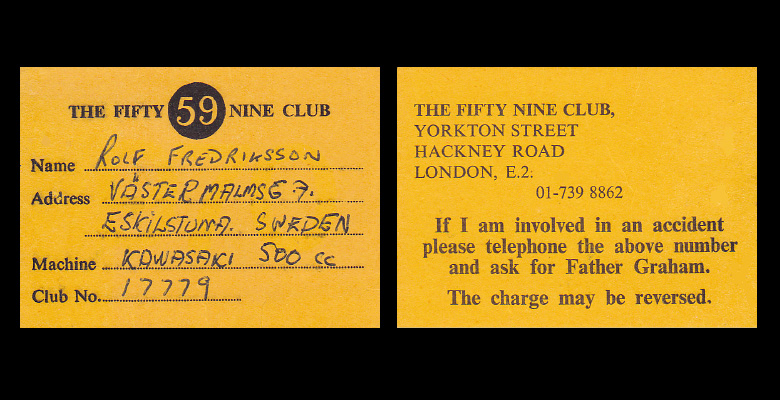 THE FIFTY 59 NINE CLUB
Name ROLF FREDRIKSSON
Address VÄSTERMALMSG 7.
ESKILSTUNA. SWEDEN
Machine KAWASAKI 500 cc
Club No. 17779
THE FIFTY NINE CLUB,
YORKTON STREET
HACKNEY ROAD
LONDON, E.2.
01-739 8862
If I am involved in an accident
please telephone the above number
and ask for Father Graham.
The charge may be reversed.